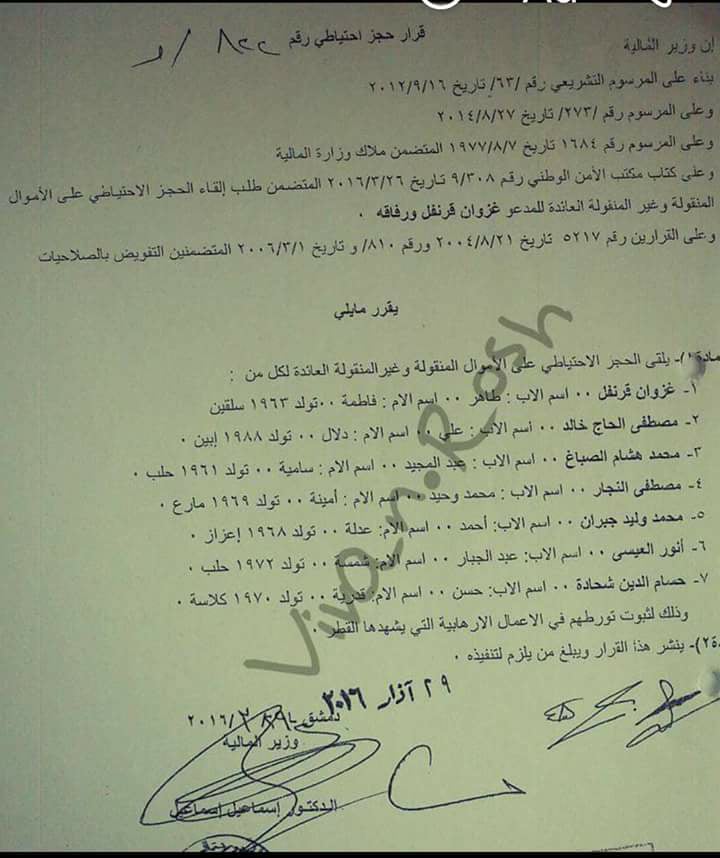 قرار حجز احتياطي رقم ٨٢٢ /و
إن وزير المالية
بناء على المرسوم التشريعي رقم /٦٣/ تاريخ ٢٠١٢/٩/١٦
وعلى المرسوم رقم /٢٧٣/ تاريخ ٢٠١٤/٨/٢٧
وعلى المرسوم رقم ١٦٨٤ تاريخ ١٩٧٧/٨/٧ المتضمن ملاك وزارة المالية
وعلى كتاب مكتب الأمن الوطني رقم ٩/٣٠٨ تاريخ ٢٠١٦/٣/٢٦ المتضمن طلب إلقاء الحجز الاحتياطي على الأموال
المنقولة وغير المنقولة العائدة للمدعو غزوان قرنفل ورفاقه ٠
وعلى القرارين رقم ٥٢١٧ تاريخ ٢٠٠٤/٨/٢١ ورقم ٨١٠/ و تاريخ ٢٠٠٦/٣/١ المتضمنين التفويض بالصلاحيات
يقرر مايلي
مادة١)- يلقى الحجز الاحتياطي على الأموال المنقولة وغيرالمنقولة العائدة لكل من :
١- غزوان قرنفل ٠٠ اسم الاب : طاهر ٠٠ اسم الام : فاطمة ٠٠تولد ١٩٦٣ سلقين
٢- مصطفى الحاج خالد ٠٠ أسم الاب : علي ٠٠ اسم الام : دلال ٠٠ تولد ١٩٨٨ إبين ٠
٣- محمد هشام الصباغ ٠٠ اسم الاب : عبد المجيد ٠٠ اسم الام : سامية ٠٠ تولد ١٩٦١ حلب ٠
٤- مصطفى النجار ٠٠ اسم الاب : محمد وحيد ٠٠ اسم الام : أمينة ٠٠ تولد ١٩٦٩ مارع ٠
٥- محمد وليد جبران ٠٠ اسم الاب: أحمد ٠٠ اسم الام: عدلة ٠٠ تولد ١٩٦٨ إعزاز ٠
٦- أنور العيسى ٠٠ اسم الاب: عبد الجبار ٠٠ اسم الام: شمسة ٠٠ تولد ١٩٧٢ حلب ٠
٧- حسام الدين شحادة ٠٠ اسم الاب: حسن ٠٠ اسم الام: قدرية ٠٠ تولد ١٩٧٠ كلاسة ٠
وذلك لثبوت تورطهم في الاعمال الارهابية التي يشهدها القطر ٠
دة٢)- ينشر هذا القرار ويبلغ من يلزم لتنفيذه ٠
Viva.n.Rosh
٢٩ آذار ٢٠١٦
دمشق ٢٠١٦/
وزير المالية
الدكتور إسماعيل إسماعيل